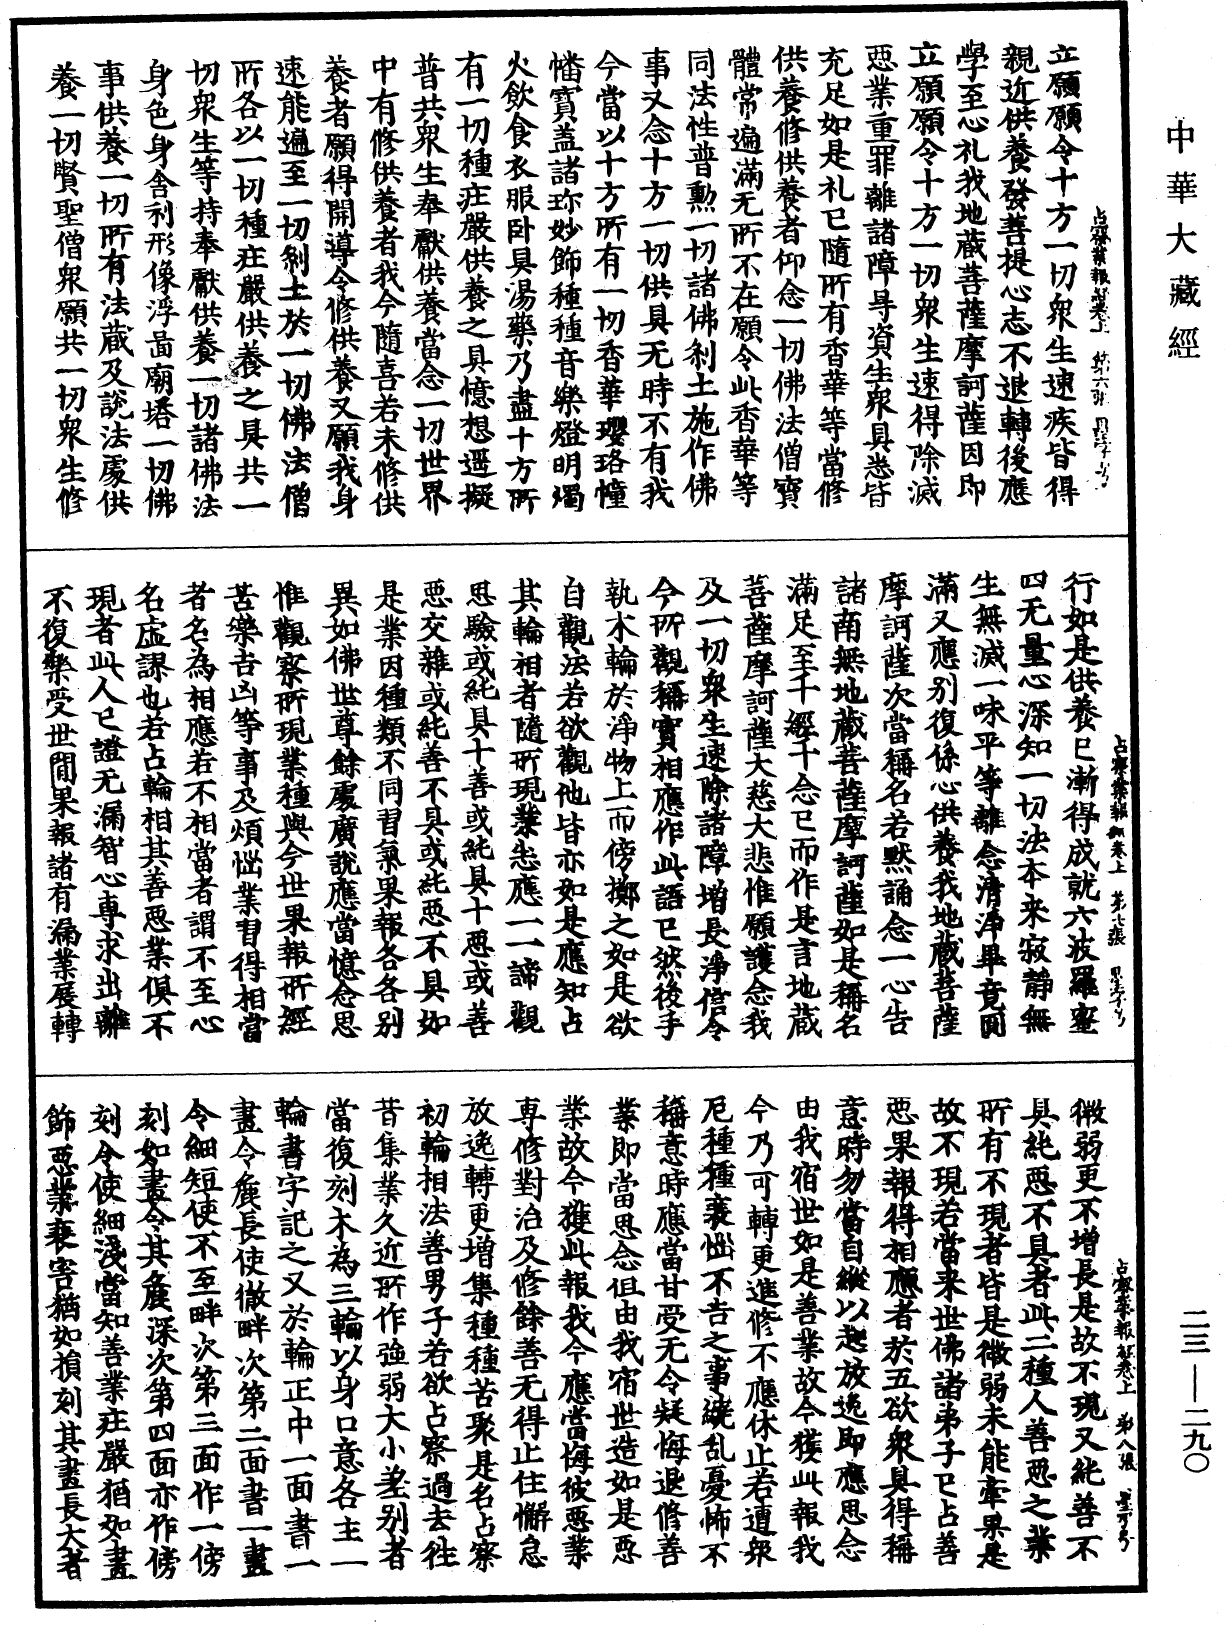 中華大藏經
占察業報經卷上 第六張
立願願令十方一切衆生速疾皆得
親近供養發菩提心志不退轉後應
學至心礼我地藏菩薩摩訶薩因即
立願願令十方一切衆生速得除滅
惡業重罪離諸障㝵資生衆具悉皆
充足如是礼已隨所有香華等當修
供養修供養者仰念一切佛法僧寶
體常遍滿无所不在願令此香華等
同法性普勳一切諸佛刹土施作佛
事又念十方一切供具无時不有我
今當以十方所有一切香華瓔珞幢
幡寶盖諸珎妙飾種種音樂燈明燭
火飲食衣服卧具湯藥乃盡十方所
有一切種疰嚴供養之具憶想遥擬
普共衆生奉獻供養當念一切世界
中有修供養者我今隨喜若未修供
養者願得開導令修供養又願我身
速能遍至一切刹土於一切佛法僧
所各以一切種疰嚴供養之具共一
切衆生等持奉獻供養一切諸佛法
身色身舍利形像浮啚廟塔一切佛
事供養一切所有法藏及說法處供
養一切賢聖僧衆願共一切衆生修
占察業報經卷上 第七張
行如是供養已漸得成就六波羅蜜
四无量心深知一切法本来寂靜無
生無滅一味平等離念清淨畢竟圓
滿又應別復係心供養我地藏菩薩
摩訶薩次當稱名若默誦念一心告
諸南無地藏菩薩摩訶薩如是稱名
滿足至千經千念已而作是言地藏
菩薩摩訶薩大慈大悲惟願護念我
及一切衆生速除諸障增長淨信令
今所觀稱實相應作此語已然後手
執木輪於淨物上而傍擲之如是欲
自觀法若欲觀他皆亦如是應知占
其輪相者隨所現業悉應一一諦觀
思驗或純具十善或純具十惡或善
惡交雜或純善不具或純惡不具如
是業因種類不同習氣果報各各別
異如佛世尊餘處廣說應當憶念思
惟觀察所現業種與今世果報所經
苦樂吉凶等事及煩惱業習得相當
者名為相應若不相當者謂不至心
名虛謬也若占輪相其善惡業俱不
現者此人已證无漏智心專求出離
不復樂受世間果報諸有漏業展轉
占察業報經卷上 第八張
微弱更不增長是故不現又純善不
具純惡不具者此二種人善惡之業
所有不現者皆是微弱未能牽果是
故不現若當来世佛諸弟子已占善
惡果報得相應者於五欲衆具得稱
意時勿當自縱以起放逸即應思念
由我宿世如是善業故今獲此報我
今乃可轉更進修不應休止若遭衆
厄種種衰惱不吉之事繞乱憂怖不
稱意時應當甘受无令疑悔退修善
業即當思念但由我宿世造如是惡
業故今獲此報我今應當悔彼惡業
專修對治及修餘善无得止住懈怠
放逸轉更增集種種苦聚是名占察
初輪相法善男子若欲占察過去往
昔集業久近所作強弱大小差别者
當復刻木為三輪以身口意各主一
輪書字記之又於輪正中一面書一
畫令麁長使徹畔次第二面書一畫
令細短使不至畔次第三面作一傍
刻如畫令其麁深次第四面亦作傍
刻令使細淺當知善業疰嚴猶如畫
飾惡業衰害猶如損刻其畫長大者
二三—二九〇